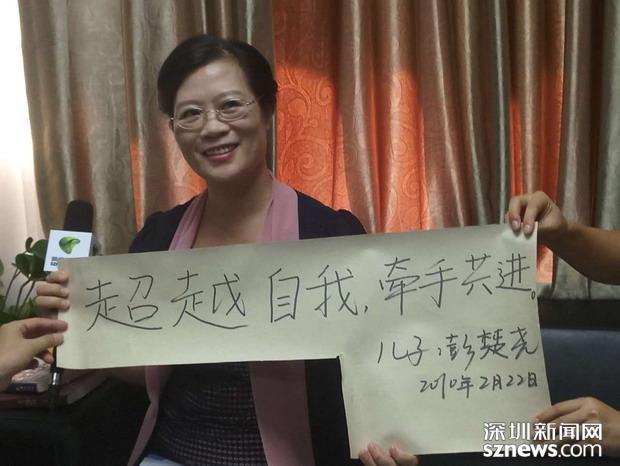 超越自我,牵手共进。
儿子:彭楚尧
2010年2月22日
深圳新闻网
sznews.com